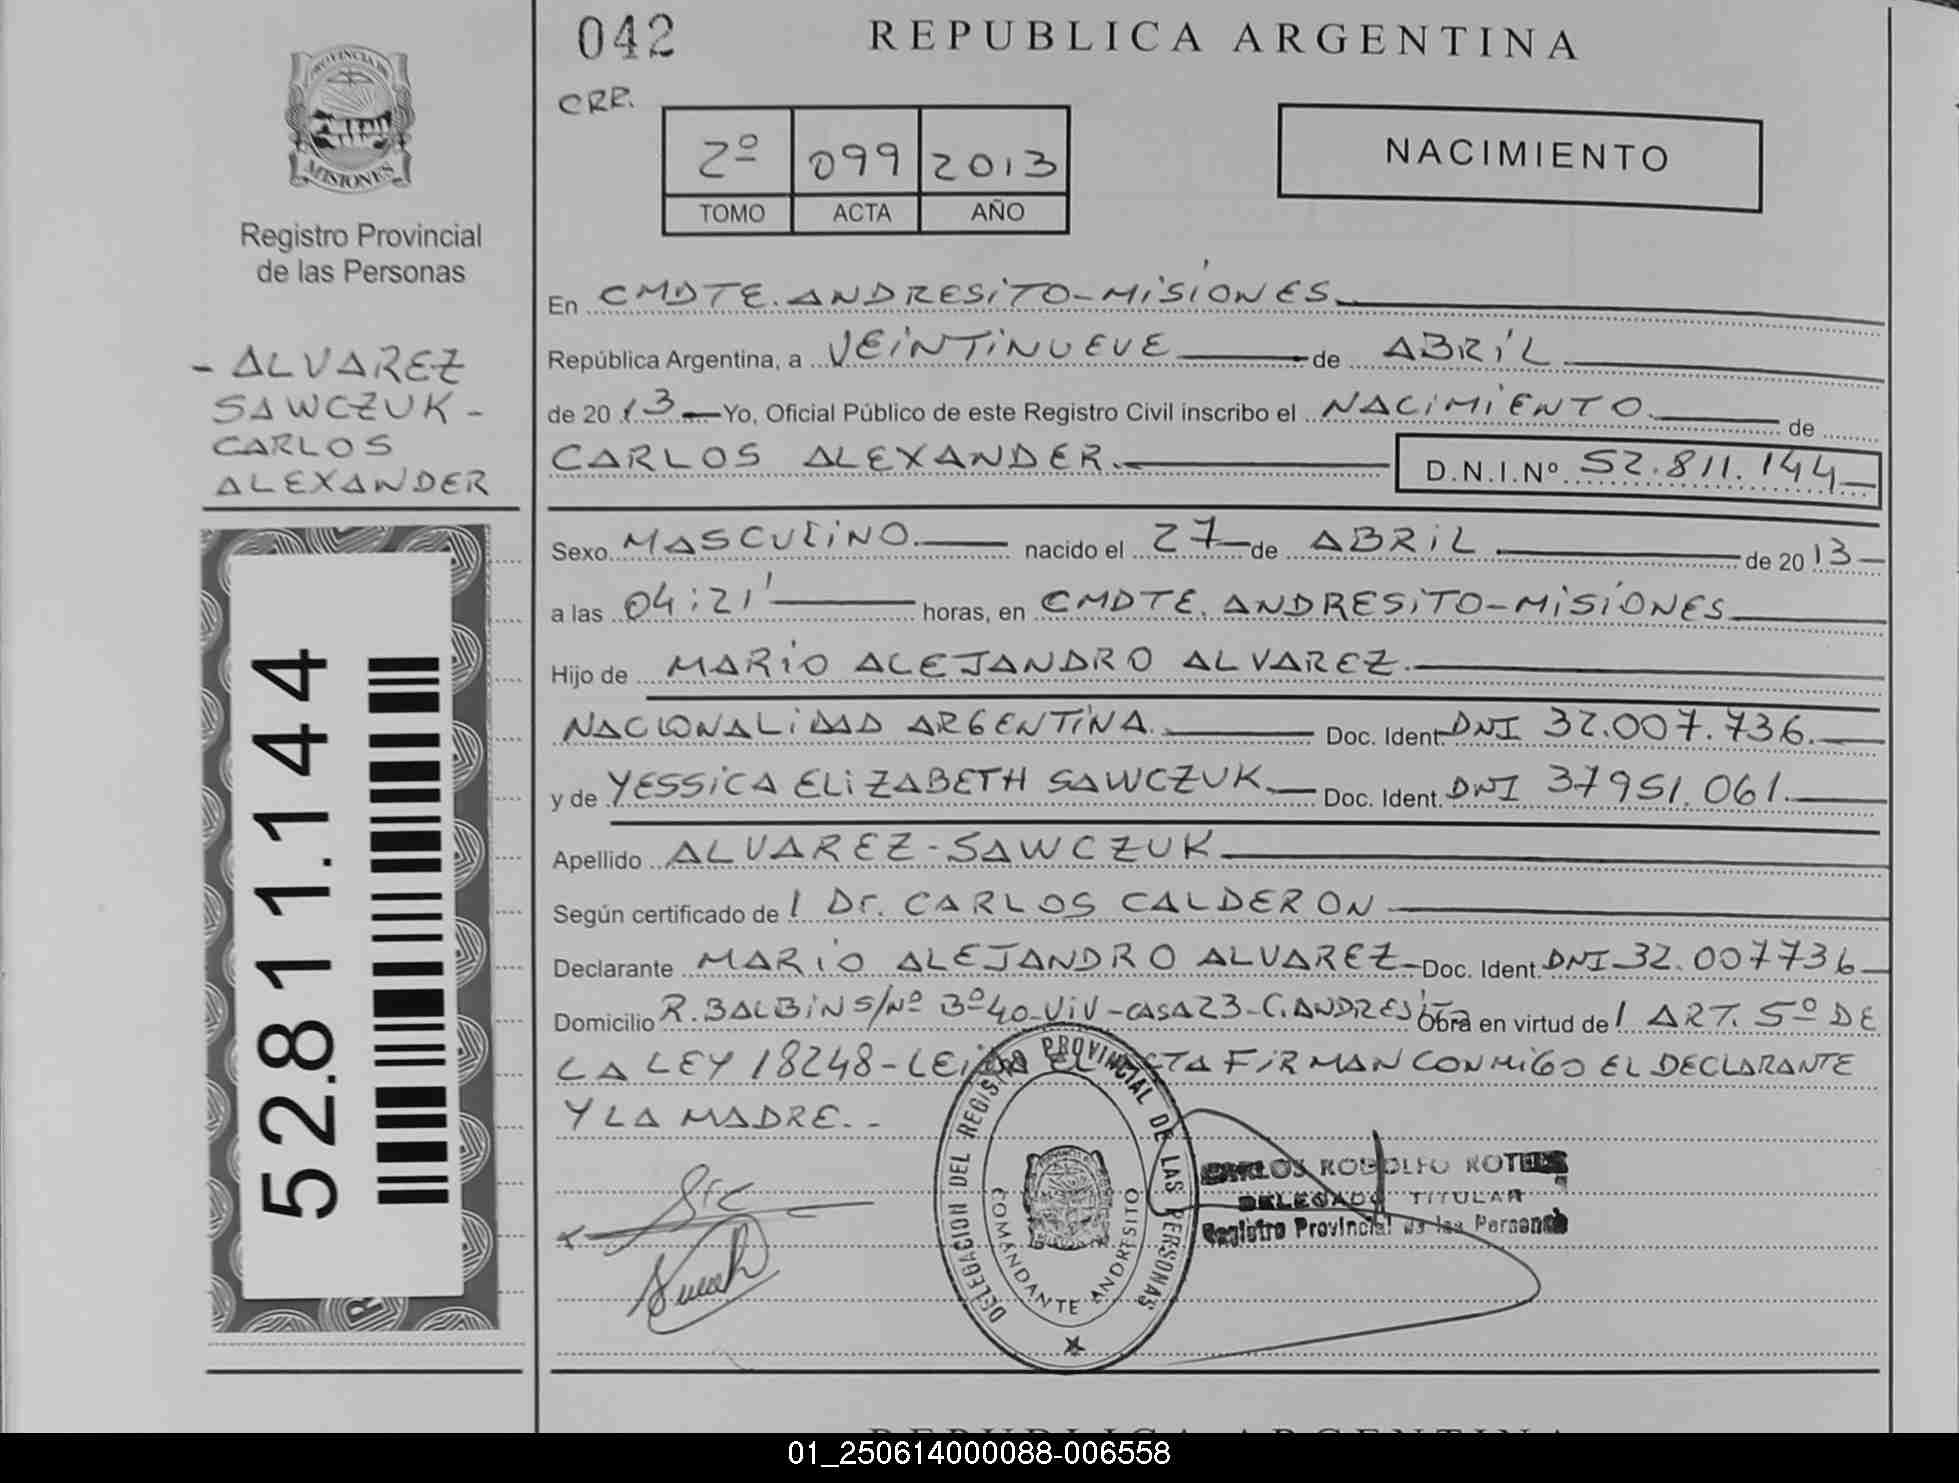 042
REPUBLICA ARGENTINA
CRR.
PROVINCIA DE
MISIONES
Registro Provincial
de las Personas
2º 099 2013
TOMO ACTA AÑO
NACIMIENTO
- ALVAREZ
SAWCZUK -
CARLOS
ALEXANDER
52.811.144
En CMDTE. ANDRESITO-MISIONES.
República Argentina, a VEINTINUEVE de ABRIL
de 2013 Yo, Oficial Público de este Registro Civil inscribo el NACIMIENTO. de
CARLOS ALEXANDER. D.N.I.Nº 52.811.144
Sexo MASCULINO. nacido el 27 de ABRIL de 2013
a las 04:21' horas, en CMDTE. ANDRESITO-MISIONES
Hijo de MARIO ALEJANDRO ALVAREZ.
NACIONALIDAD ARGENTINA. Doc. Ident. DNI 32.007.736.
y de YESSICA ELIZABETH SAWCZUK. Doc. Ident. DNI 37951.061.
Apellido ALVAREZ-SAWCZUK
Según certificado de l Dr. CARLOS CALDERON
Declarante MARIO ALEJANDRO ALVAREZ Doc. Ident. DNI 32.007736
Domicilio R. BALBIN S/Nº Bº40-VIV-CASA23-C.ANDRESITO Obra en virtud de l ART. 5º DE
LA LEY 18248-LEIDA EL ACTA FIRMAN CONMIGO EL DECLARANTE
Y LA MADRE.-
DELEGACION DEL REGISTRO PROVINCIAL DE LAS PERSONAS
COMANDANTE ANDRESITO
CARLOS RODOLFO
DELEGADO TITULAR
Registro Provincial de las Personas
REPUBLICA ARGENTINA
01_250614000088-006558